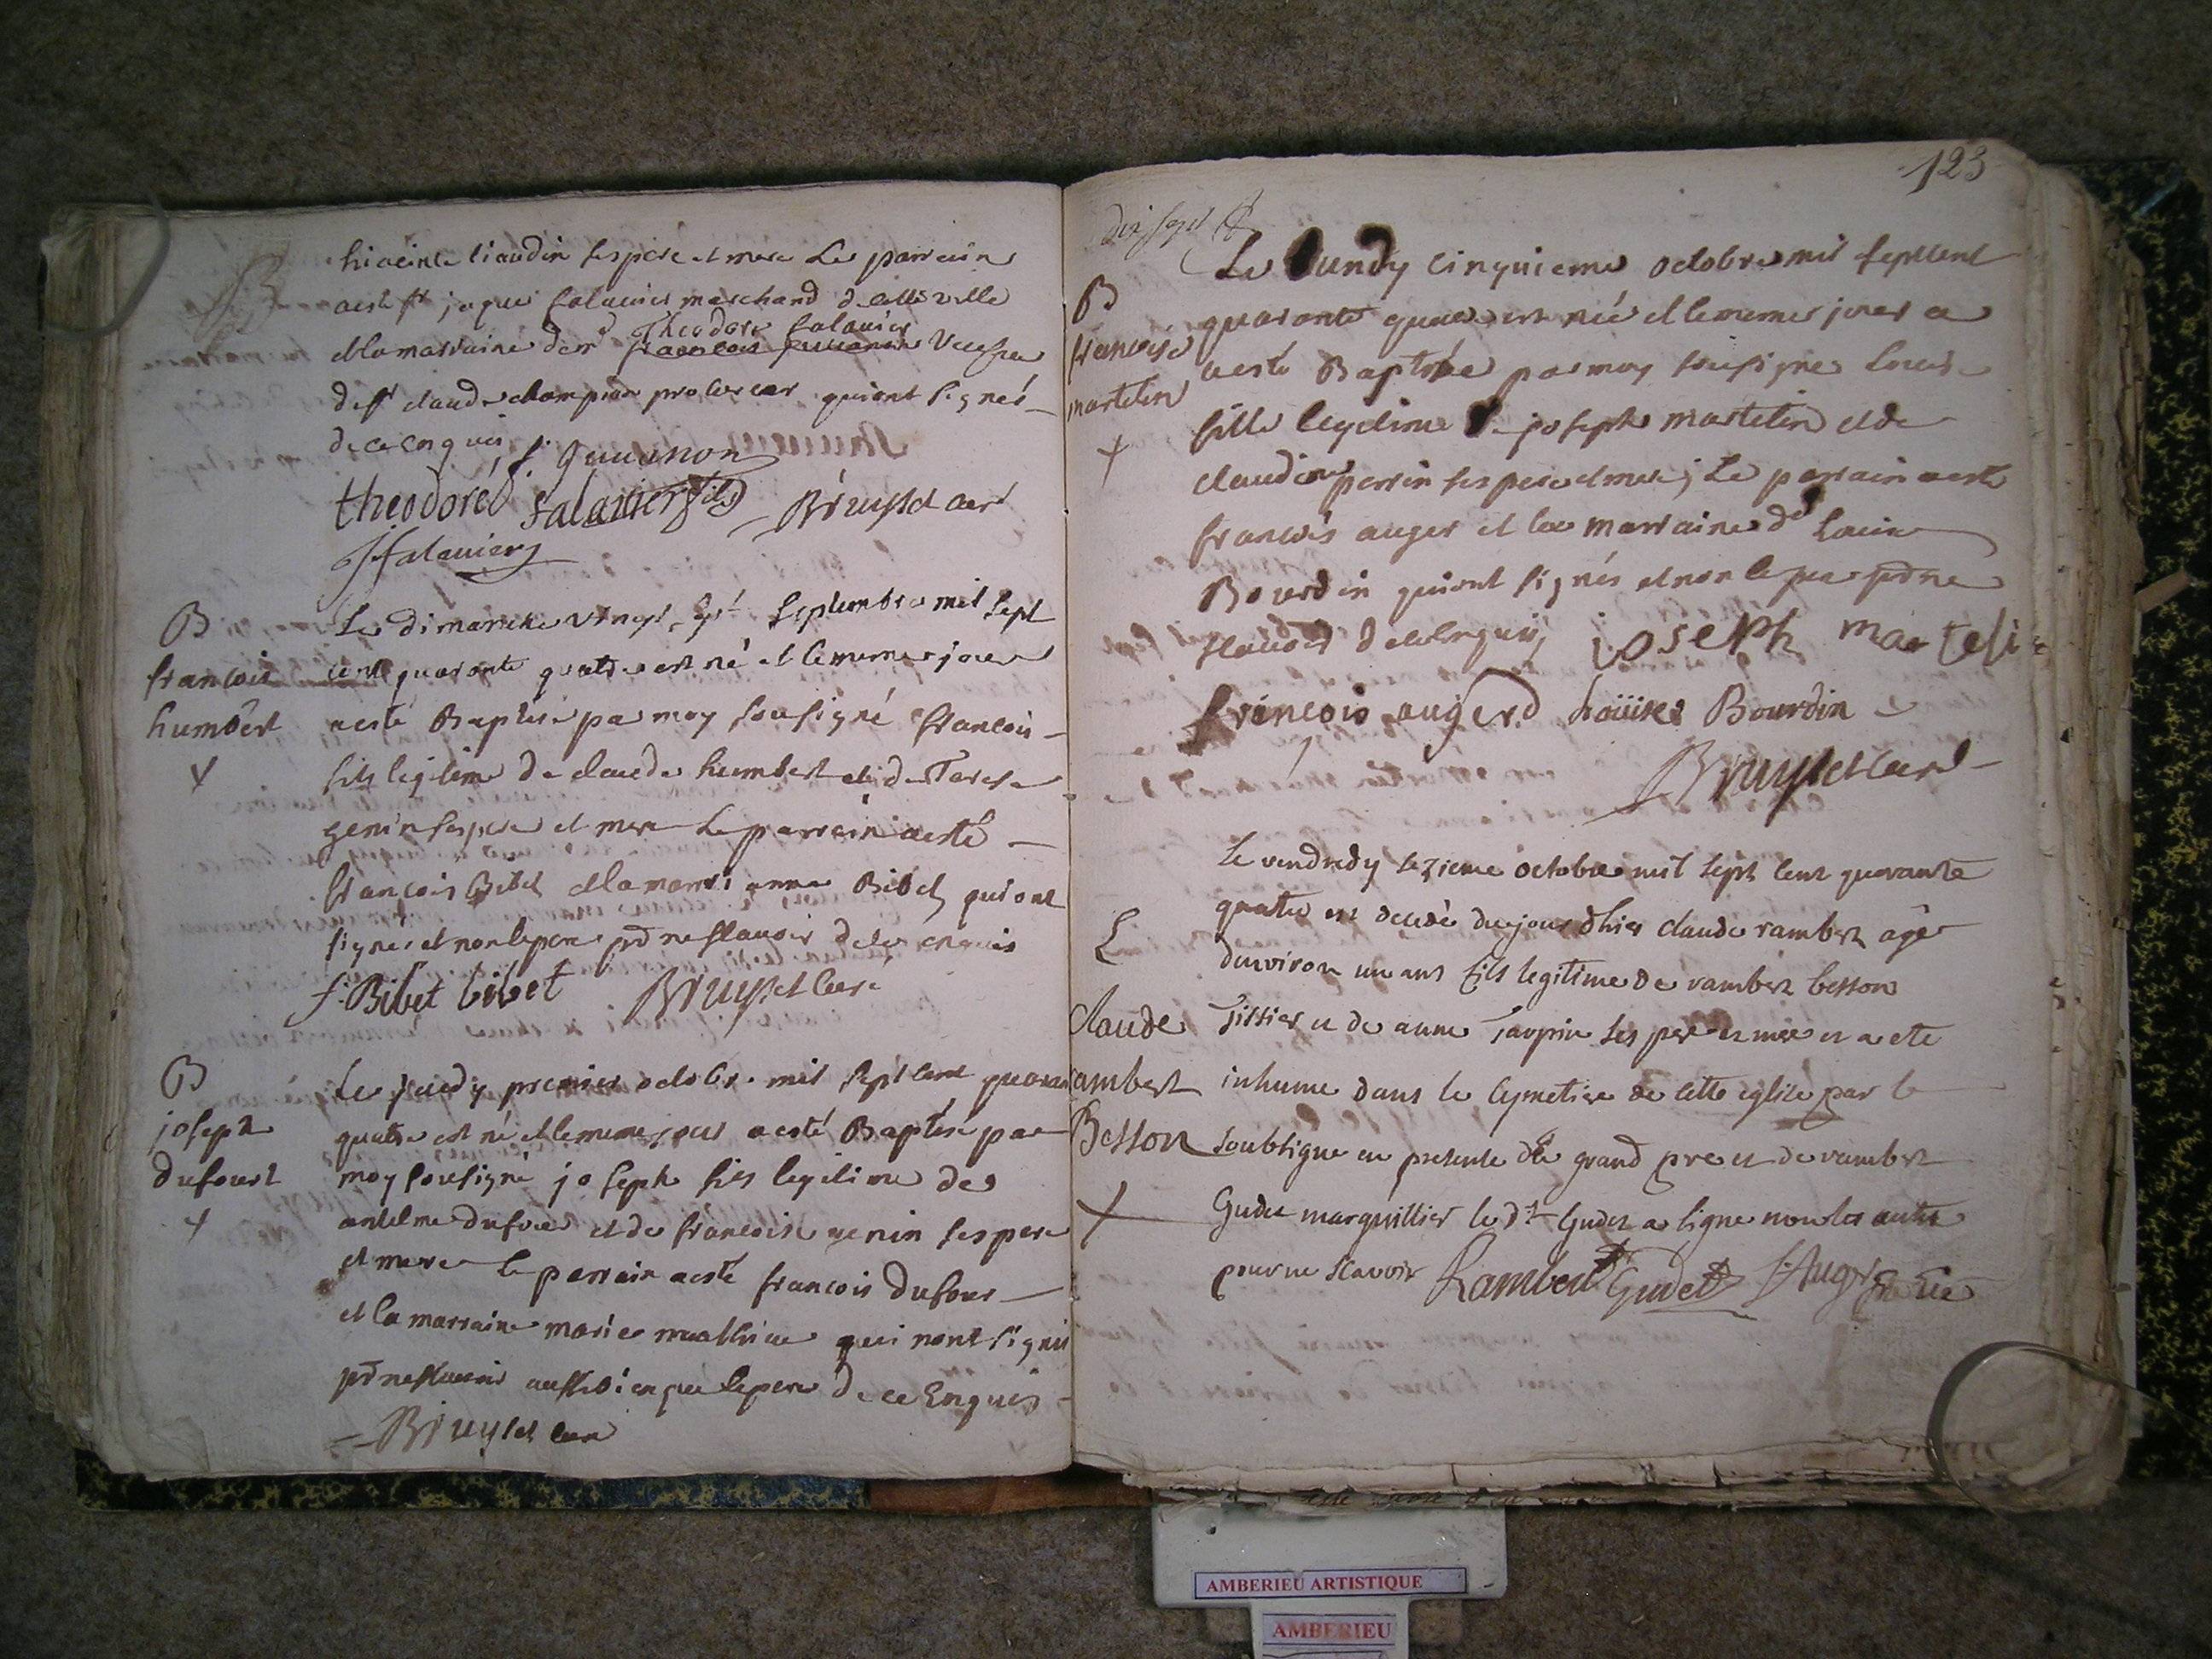 hiacinte liaudin ses pere et mere Le parrain
a esté sr jaque salavier marchand de cette ville
et la marraine dem Theodore salavier
de sr claude champion procureur qui ont signés
de ce enquis
f. Guuanon
theodoré
salavier fils
Bruyset curé
J salavier
B
françois
humbert
Le dimanche vingt sept septembre mil sept
cent quarante quatre est né et le meme jour
a esté Baptisé par moy sousigné françois
fils legitime de claude humbert et de Terese
genin ses pere et mere Le parrein a esté
françois Bibet et la marr anne Bibet qui ont
signés et non le pere pr ne sçavoir de ce enquis
f. Bibet bibet Bruyset curé
B
joseph
dufourt
Le jeudy premier octobre mil sept cent quaran
quatre est né et le meme jour a esté Baptisé par
moy sousigné joseph fils legitime de
antelme dufour et de françoise genin ses pere
et mere le parrain a esté françois dufour
et la marraine marie qui nont signés
pr ne sçavoir aussi bien que le pere de ce Enquis
Bruyset curé
123
dix sept
B
françoise
martelin
Le Lundy cinquieme octobre mil sept cent
quarante quatre est née et le meme jour a
a esté Baptisée par moy sousigné Louise
fille legitime de joseph martelin et de
claudine perrin ses pere et mere; Le parrain a esté
francois auger et la marraine de Louise
Bourdin qui ont signés et non le pere pr ne
sçavoir de ce enquis joseph martelin
françois augerd Loüise Bourdin
Bruyset curé
Le vendredy sezieme octobre mil sept cent quarante
quatre est decedé du jour dhier claude rambert âgé
denviron un ans fils legitime de rambert besson
Tissier et de anne Taupin ses pere et mere et a ete
inhume dans le cymetiere de cette eglise par le
soubsigne en presence de grand pre et de rambert
Gudet marguillier le dt Gudet a signe non les autre
pour ne scavoir Rambert Gudet
claude
rambert
Besson
AMBERIEU ARTISTIQUE
AMBERIEU